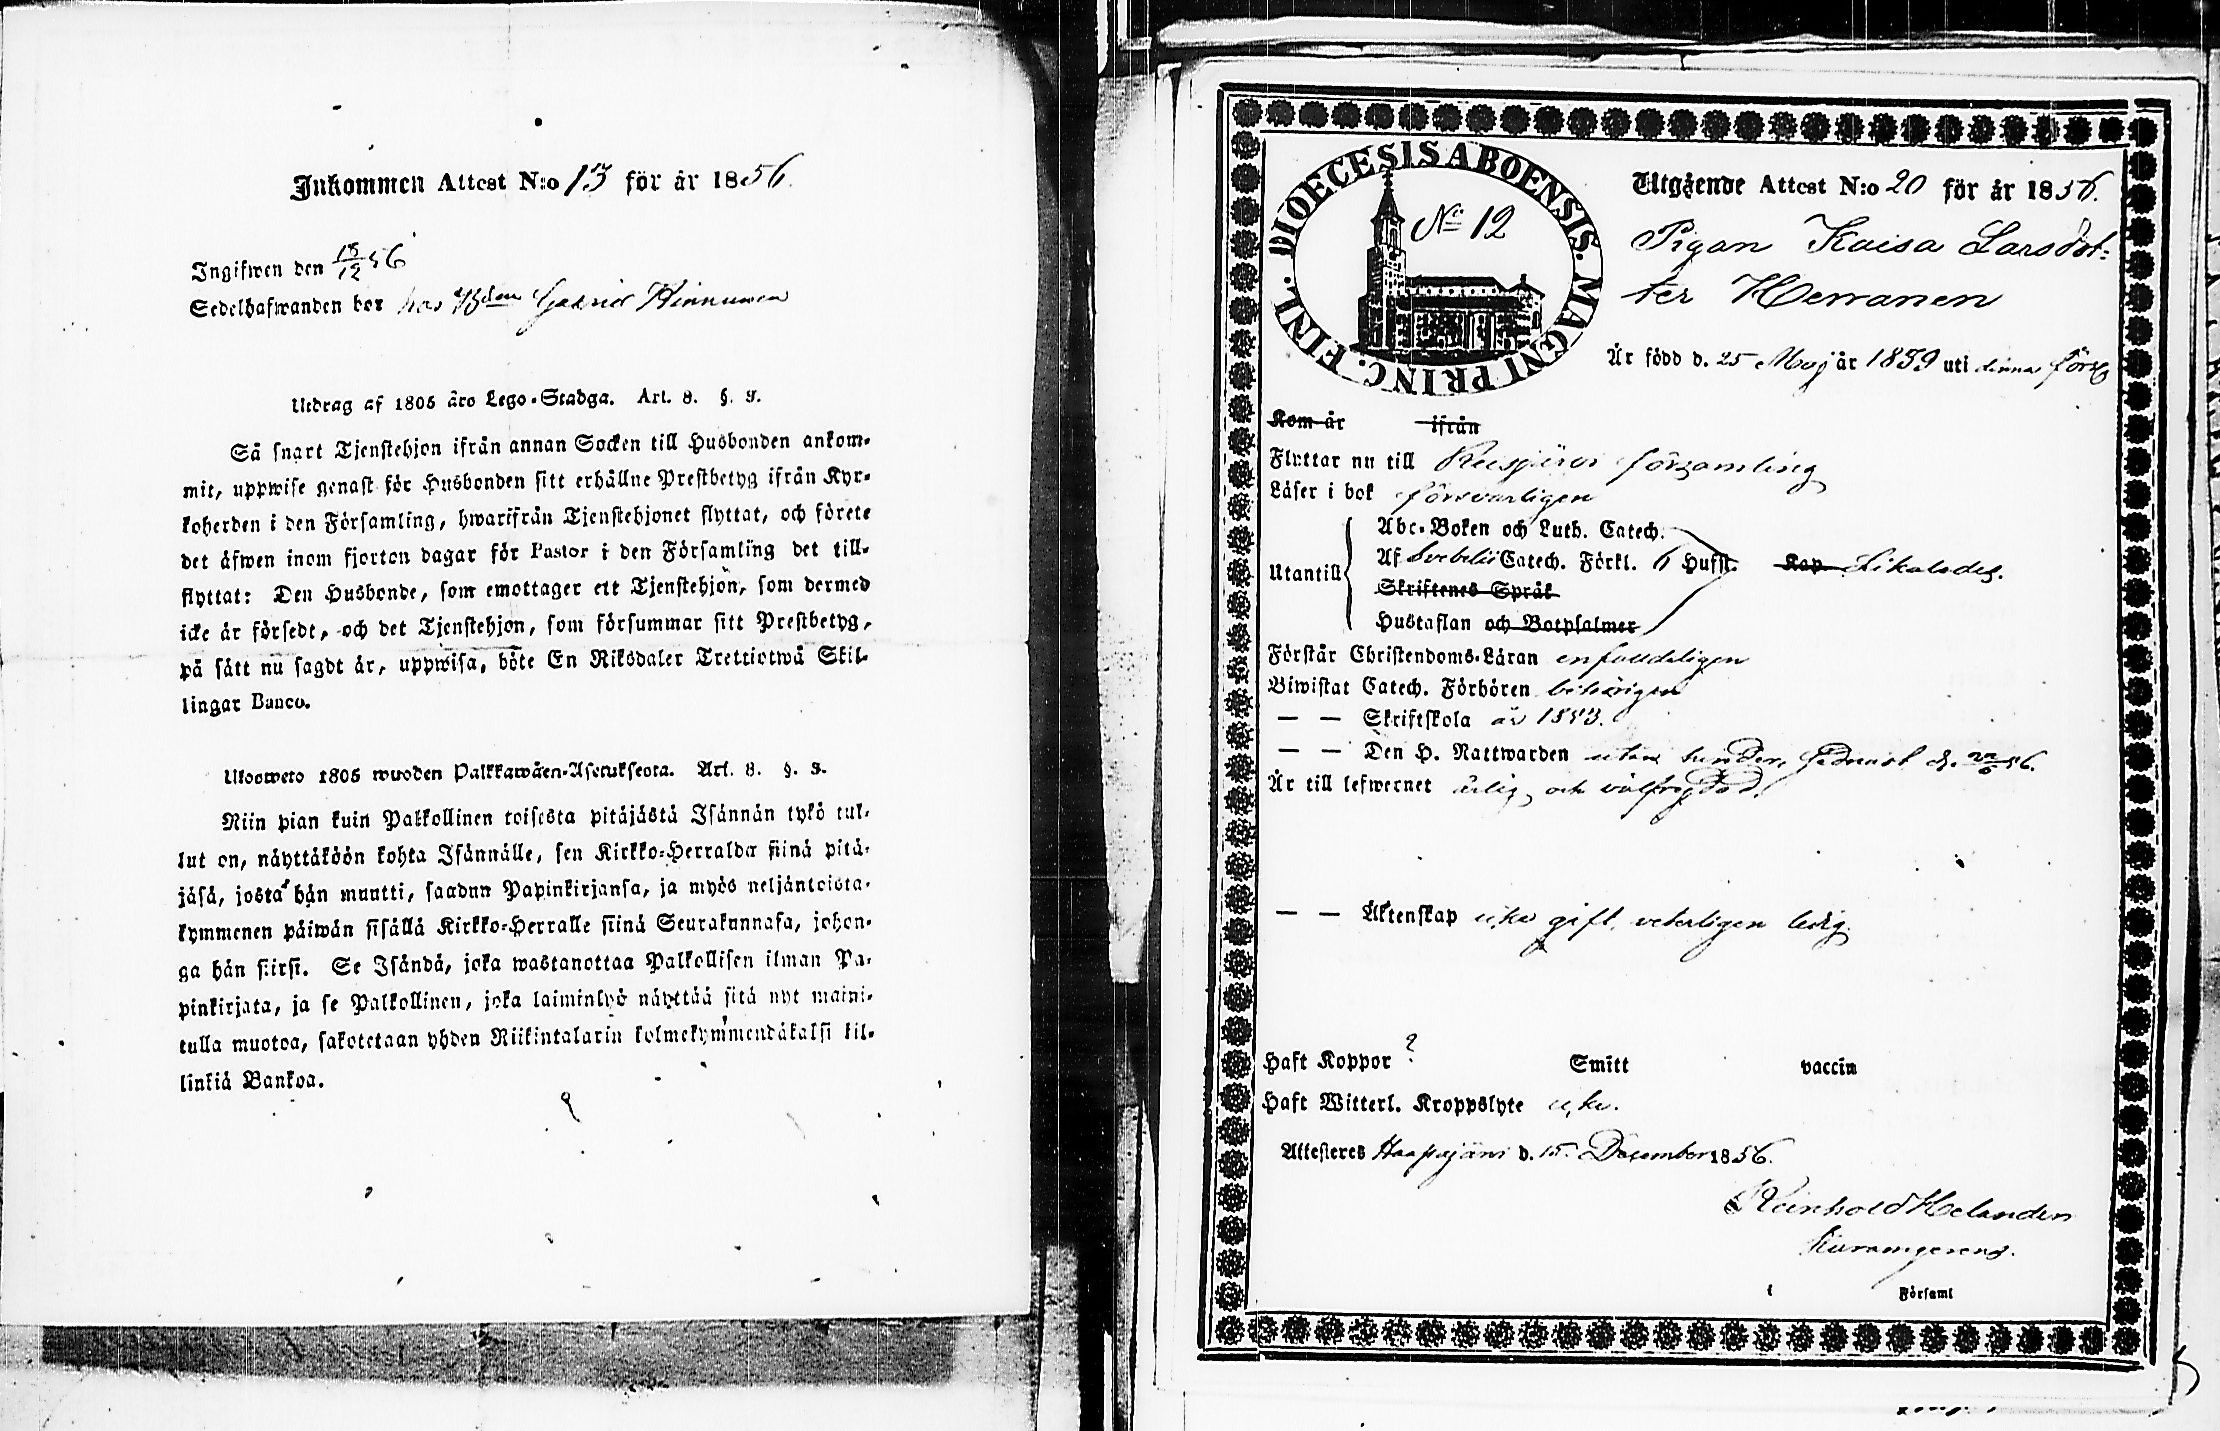 Inkommen Attest N:o 13 för år 1856.
Ingifwen den 18/12 56
Sedelhafwanden bor hos Bden Gabriel Hinnunen
Utdrag af 1805 års Lego-Stadga. Art. 8. §. 3.
Så snart Tjenstehjon ifrån annan Socken till Husbonden ankom-
mit, uppwise genast för Husbonden sitt erhållne Prestbetyg ifrån Kyr-
koherden i den Församling, hwarifrån Tjenstehjonet flyttat, och förete
det äfwen inom fjorton dagar för Pastor i den Församling det till-
flyttat: Den Husbonde, som emottager ett Tjenstehjon, som dermed
icke är försedt, och det Tjenstehjon, som försummar sitt Prestbetyg,
på sätt nu sagdt är, uppwisa, böte En Riksdaler Trettiotwå Skil-
lingar Banco.
Ulosweto 1805 wuoden Palkkawäen-Asetuksesta. Art. 8. §. 3.
Niin pian kuin Palkollinen toisesta pitäjästä Isännän tykö tul-
lut on, näyttäköön kohta Isännälle, sen Kirkko-Herralda siinä pitä-
jäsä, josta hän muutti, saadun Papinkirjansa, ja myös neljäntoista-
kymmenen päiwän sisällä Kirkko-Herralle siinä Seurakunnasa, johon-
ga hän siirsi. Se Isändä, joka wastanottaa Palkollisen ilman Pa-
pinkirjata, ja se Palkollinen, joka laiminlyö näyttää sitä nyt maini-
tulla muotoa, sakotetaan yhden Riikintalarin kolmekymmendäkaksi kil-
linkiä Bankoa.
DIOECESIS ABOENSIS. MAGNI PRINC. FINL.
No 12
Utgående Attest N:o 20 för år 1856.
Pigan Kaisa Larsdot-
ter Herranen
Är född d. 25 Maj år 1839 uti denna förs
Kom år ifrån
Flyttar nu till Reisjärvi församling
Läser i bok försvarligen
Utantill
Abc-Boken och Luth. Catech.
Af Svebelii Catech. Förkl. 6 Hufst. Kap. Likaledes.
Skriftenes Språk
Hustaflan och Botpsalmer
Förstår Christendoms-Läran enfaldeligen
Biwistat Catech. Förhören behörigen
— — Skriftskola år 1853.
— — Den H. Nattwarden utan hinder, sednast d. 22/6 56.
Är till lefwernet ärlig och välfrejdad.
— — Äktenskap icke gift, veterligen ledig.
Haft Koppor ? Smitt vaccin
Haft Witterl. Kroppslyte icke.
Attesteres Haapajärvi d. 15 December 1856.
Reinhold Helander
i Församl